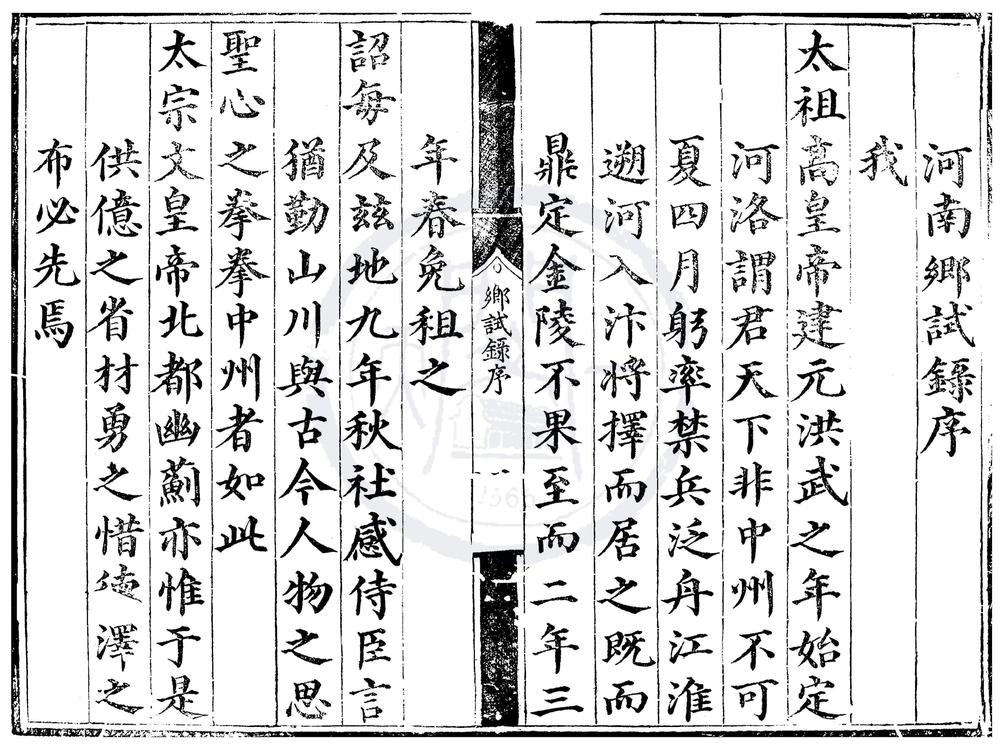 河南鄉試錄序
我
太祖高皇帝建元洪武之年始定
河洛謂君天下非中州不可
夏四月躬率禁兵泛丹江淮
遡河入汴將擇而居之既而
鼎定金陵不果至而二年三
鄉試錄序
一
年春免租之
詔每及兹地九年秋社感侍臣言
猶勤山川與古今人物之思
聖心之拳拳中州者如此
太宗文皇帝北都幽薊亦惟于是
供億之省材勇之惜德澤之
布必先焉